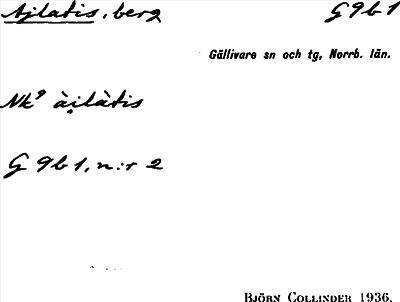 Ajlatis, berg G 9 b 1
Gällivare sn och tg, Norrb. län.
Nk⁹ ài̯làtis
G 9b1, n:r 2
BJÖRN COLLINDER 1936.